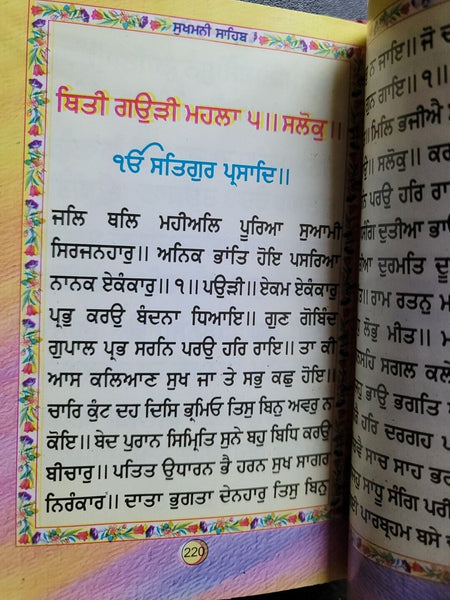 ਸੁਖਮਨੀ ਸਾਹਿਬ
ਥਿਤੀ ਗਉੜੀ ਮਹਲਾ ੫॥ ਸਲੋਕੁ॥
ੴ ਸਤਿਗੁਰ ਪ੍ਰਸਾਦਿ॥
ਜਲਿ ਥਲਿ ਮਹੀਅਲਿ ਪੂਰਿਆ ਸੁਆਮੀ
ਸਿਰਜਨਹਾਰੁ॥ ਅਨਿਕ ਭਾਂਤਿ ਹੋਇ ਪਸਰਿਆ
ਨਾਨਕ ਏਕੰਕਾਰੁ॥੧॥ ਪਉੜੀ॥ ਏਕਮ ਏਕੰਕਾਰੁ
ਪ੍ਰਭੁ ਕਰਉ ਬੰਦਨਾ ਧਿਆਇ॥ ਗੁਣ ਗੋਬਿੰਦ
ਗੁਪਾਲ ਪ੍ਰਭ ਸਰਨਿ ਪਰਉ ਹਰਿ ਰਾਇ॥ ਤਾ ਕੀ
ਆਸ ਕਲਿਆਣ ਸੁਖ ਜਾ ਤੇ ਸਭੁ ਕਛੁ ਹੋਇ॥
ਚਾਰਿ ਕੁੰਟ ਦਹ ਦਿਸਿ ਭ੍ਰਮਿਓ ਤਿਸੁ ਬਿਨੁ ਅਵਰੁ ਨ
ਕੋਇ॥ ਬੇਦ ਪੁਰਾਨ ਸਿਮ੍ਰਿਤਿ ਸੁਨੇ ਬਹੁ ਬਿਧਿ ਕਰਉ
ਬੀਚਾਰੁ॥ ਪਤਿਤ ਉਧਾਰਨ ਭੈ ਹਰਨ ਸੁਖ ਸਾਗਰ
ਨਿਰੰਕਾਰ॥ ਦਾਤਾ ਭੁਗਤਾ ਦੇਨਹਾਰੁ ਤਿਸੁ ਬਿਨੁ
220
ਨ ਜਾਇ॥ ਜੋ
ਗੁਨ ਗਾਇ॥੧॥
ਮਿਲਿ ਭਜੀਐ
॥ ਸਲੋਕੁ॥ ਕਰ
ਪਰਉ ਹਰਿ
ਸੰਗਿ ਦੁਤੀਆ ਭਾ
ਦੁਰਮਤਿ ਦੂ
ਰਾਮ ਰਤਨੁ
ਲੋਭੁ ਮੀਤ॥
ਸਗਲ ਕਲੇ
ਭਾਉ ਭਗਤਿ
ਹਰਿ ਦਰਗਹ
ਸਾਚ ਸਾਹ
ਸਾਧੂ ਸੰਗਿ ਪਰੀ
ਪਾਰਬ੍ਰਹਮ ਬਸੇ